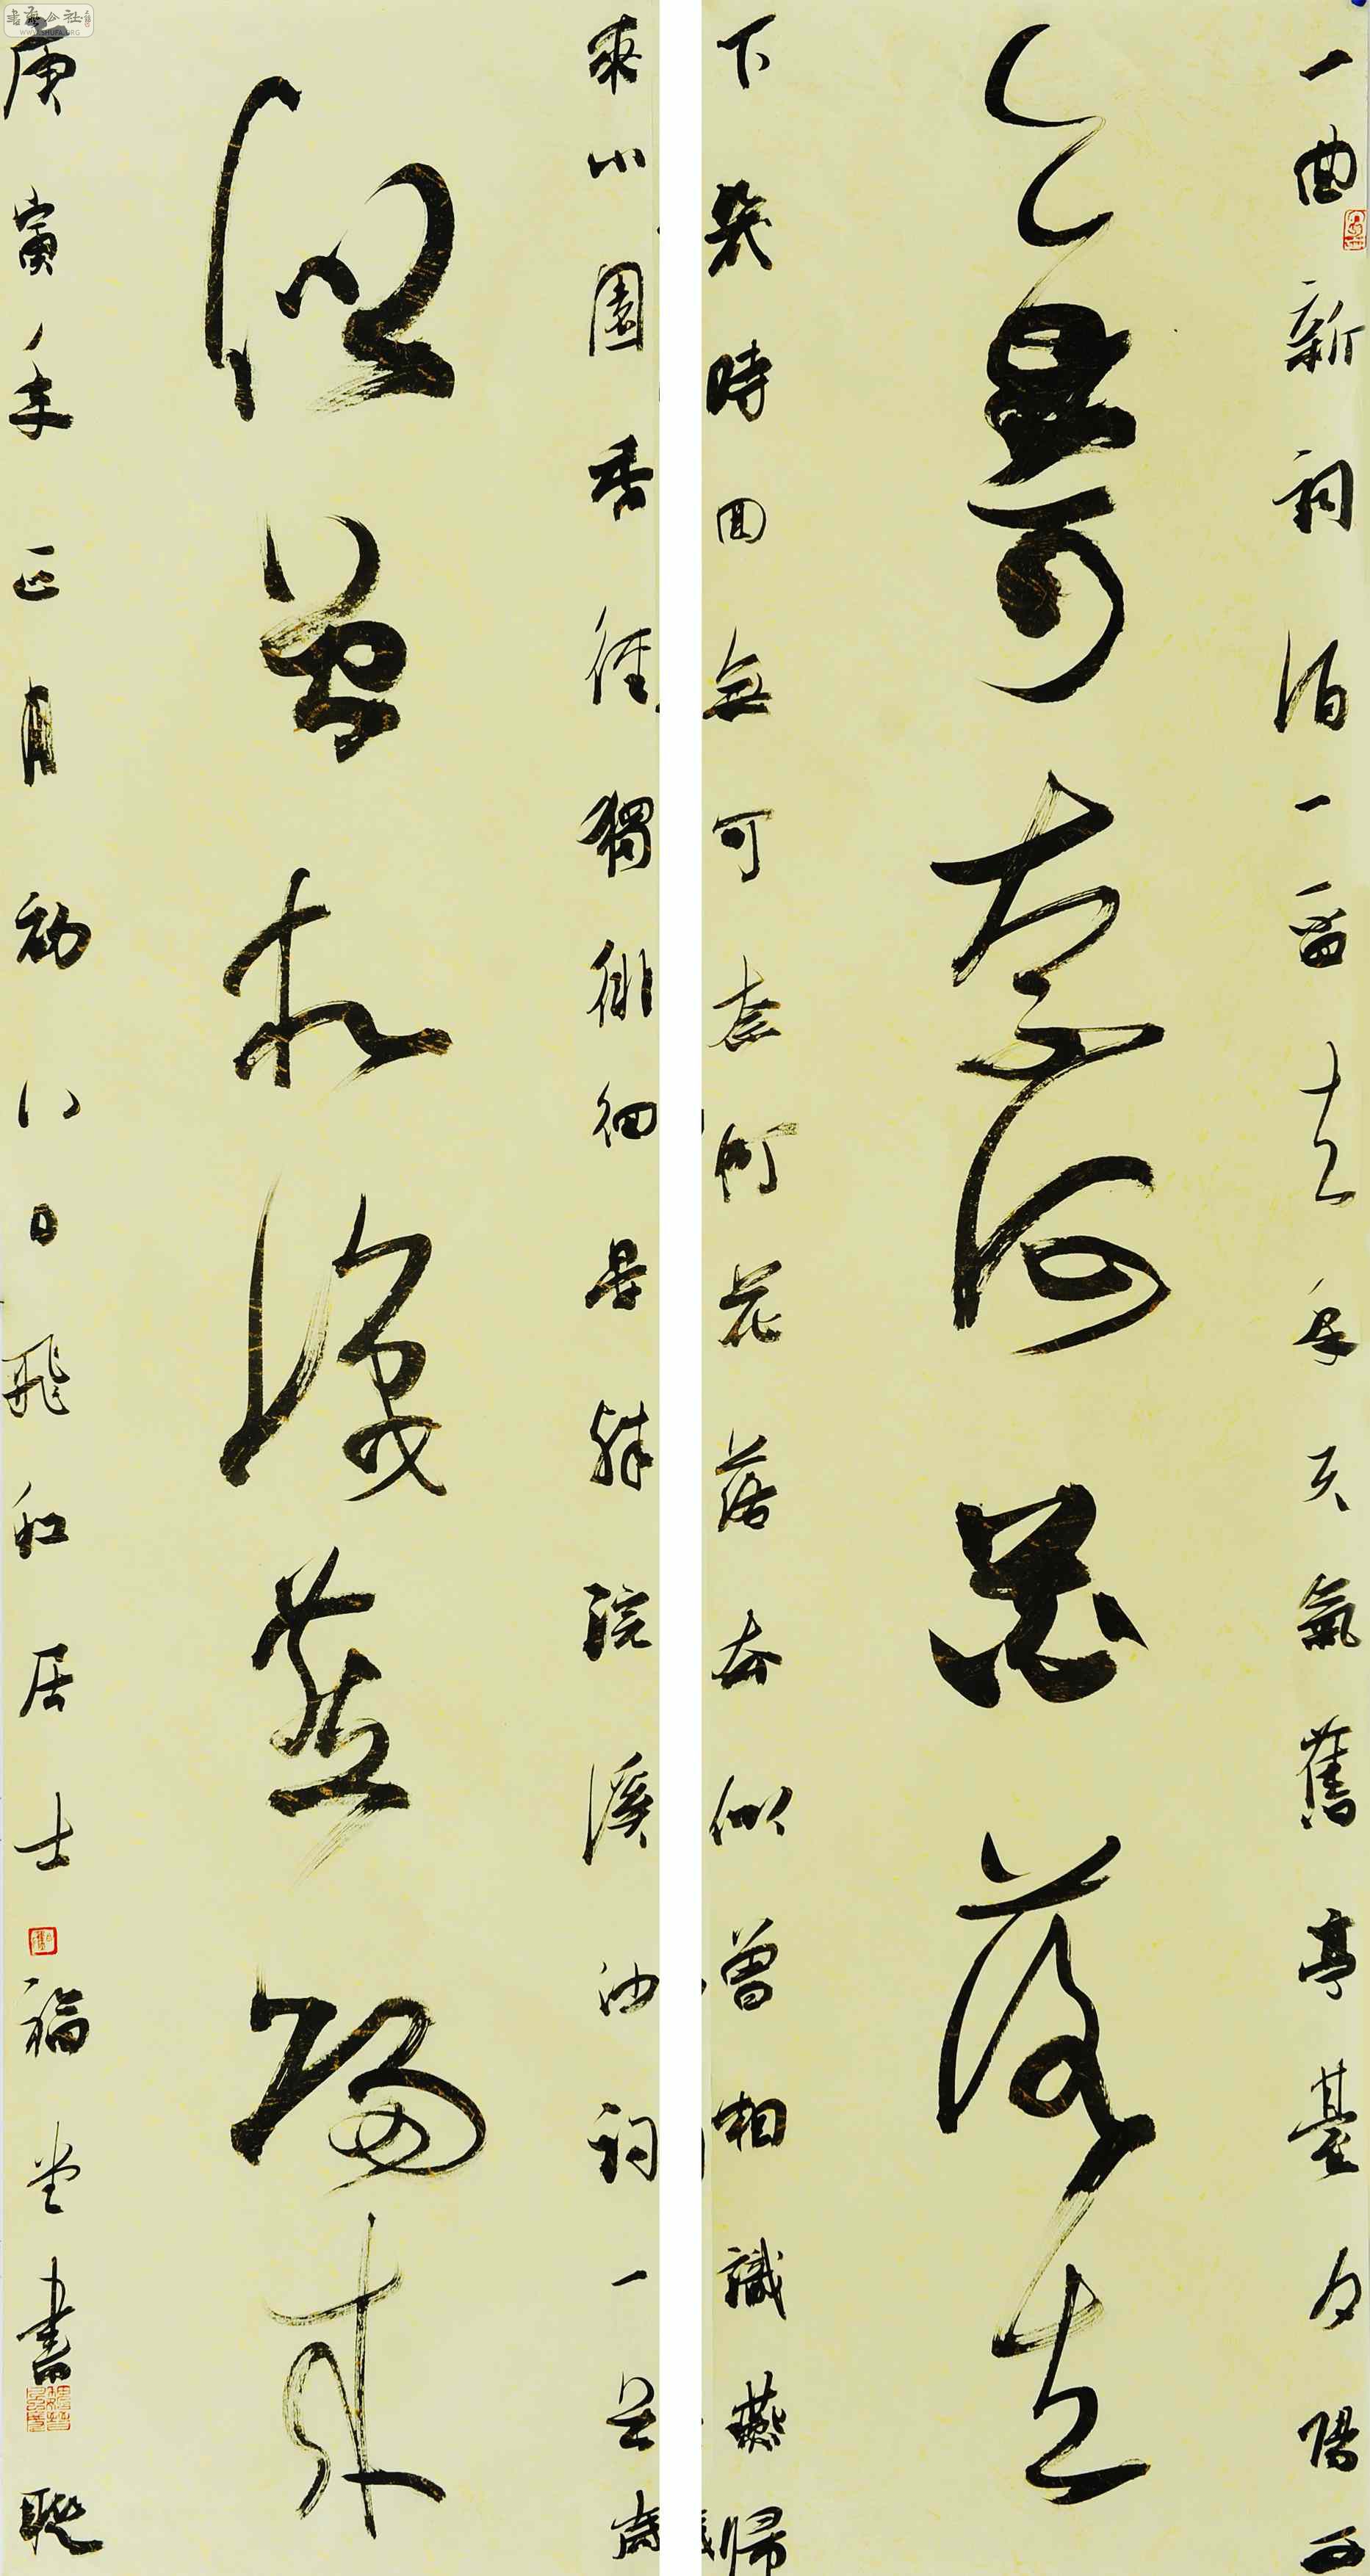 一曲新詞酒一盃去年天氣舊亭臺夕陽西
無可奈何花落去
下幾時回無可奈何花落去似曾相識燕歸
來小園香徑獨徘徊晏殊浣溪沙詞一
似曾相識燕歸來
庚寅年正月初八日飛和居士福堂書聯